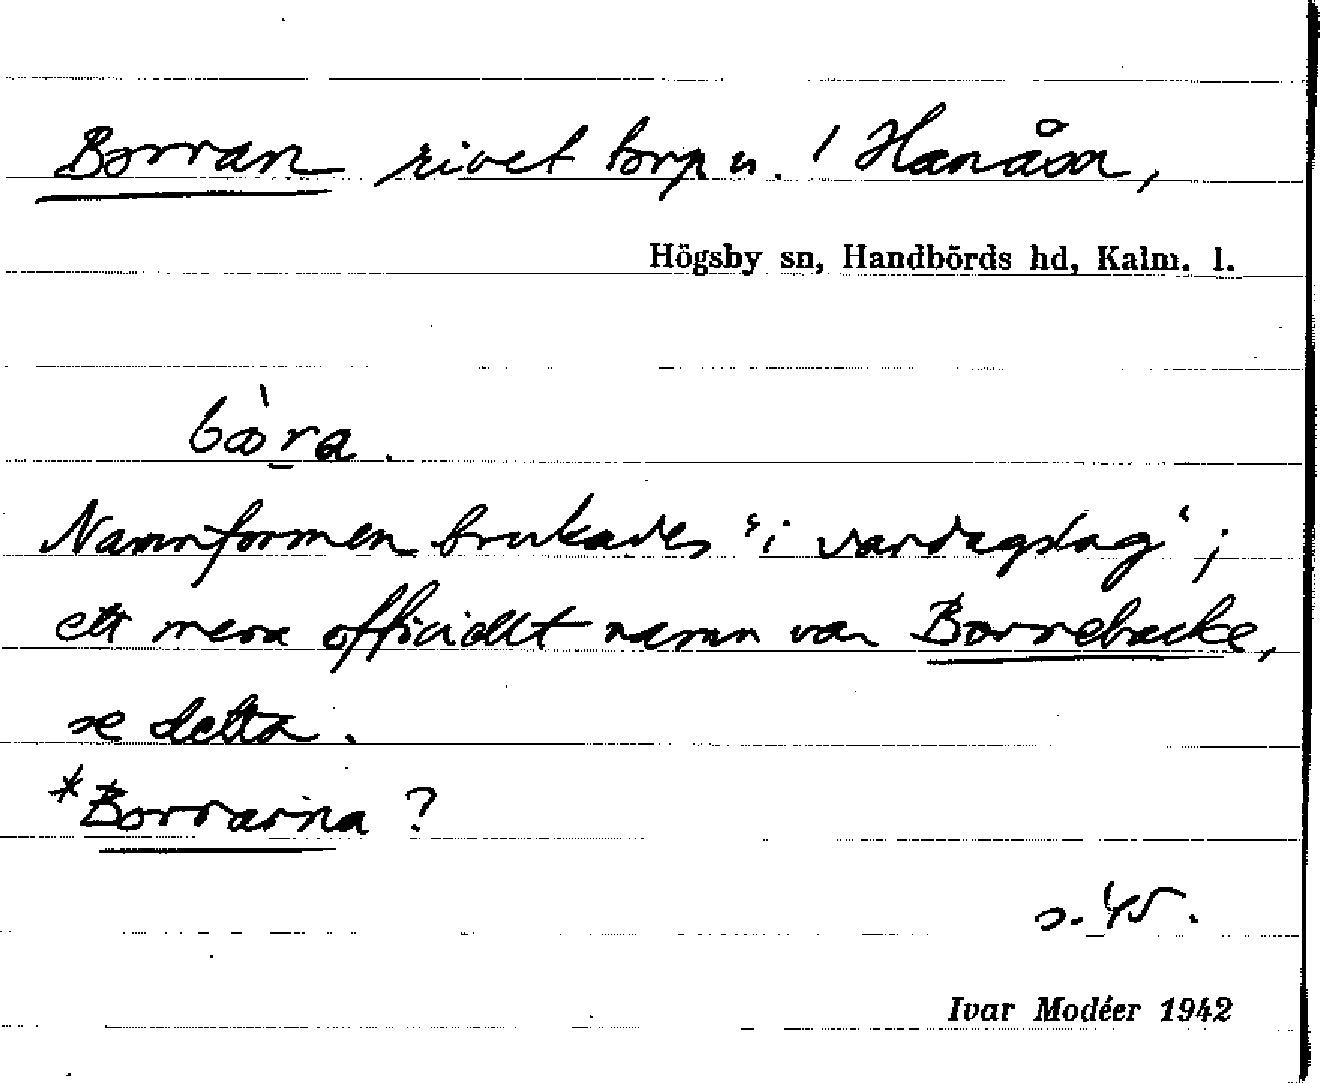 Borran rivet torp u. / Hanåsa,
Högsby sn, Handbörds hd, Kalm. l.
bòra.
Namnformen brukades "i vardagslag";
ett mera officiellt namn var Borrebacke,
se detta.
*Borrarna ?
s. 45.
Ivar Modéer 1942